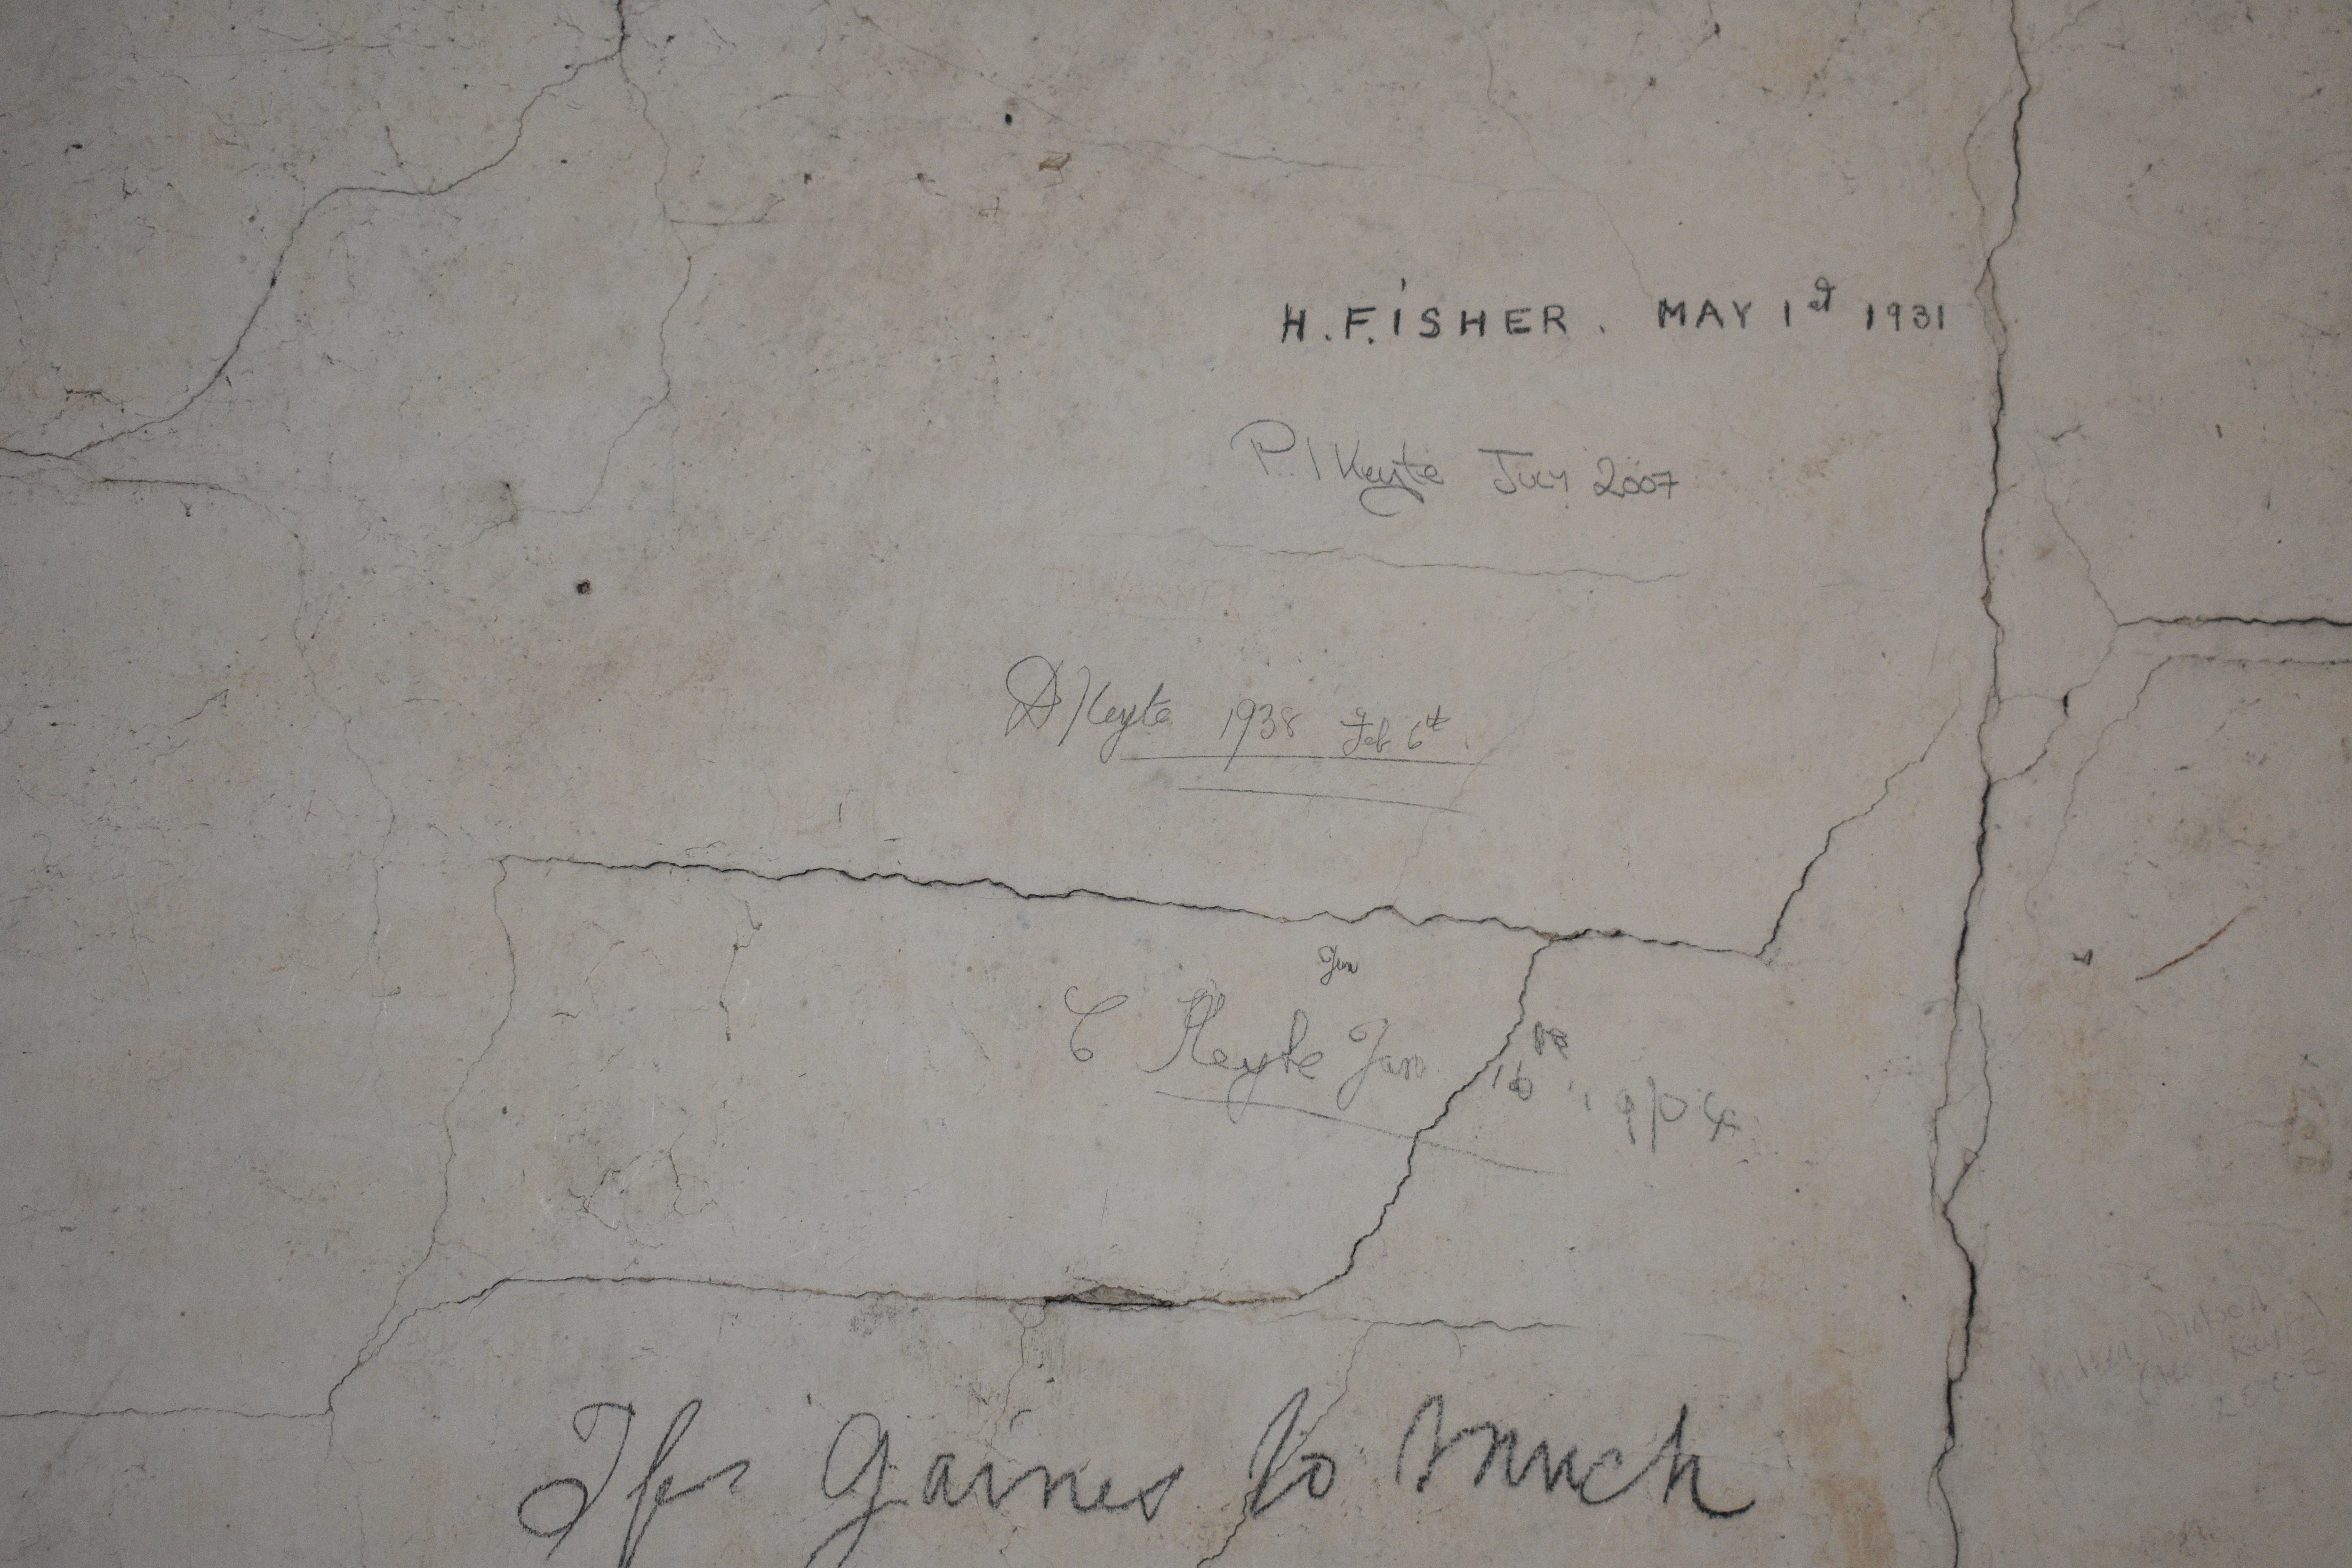 H. FISHER. MAY 1st 1931
P. I Keyte July 2007
WARNER
A Keyte 1938 Feb 6th.
Jan
C Keyte Jan 16th 1904
Ifs Gaines to much